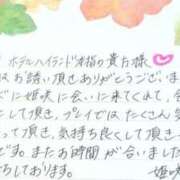 ホテルハイランド本館の貴方様
はお誘い頂きありがとうございま
に姫咲に会いに来てくれて、会
して頂き、プレイではたくさん
って頂き、気持ち良くして頂
です。またお時間が合いました
ちしております。
姫咲